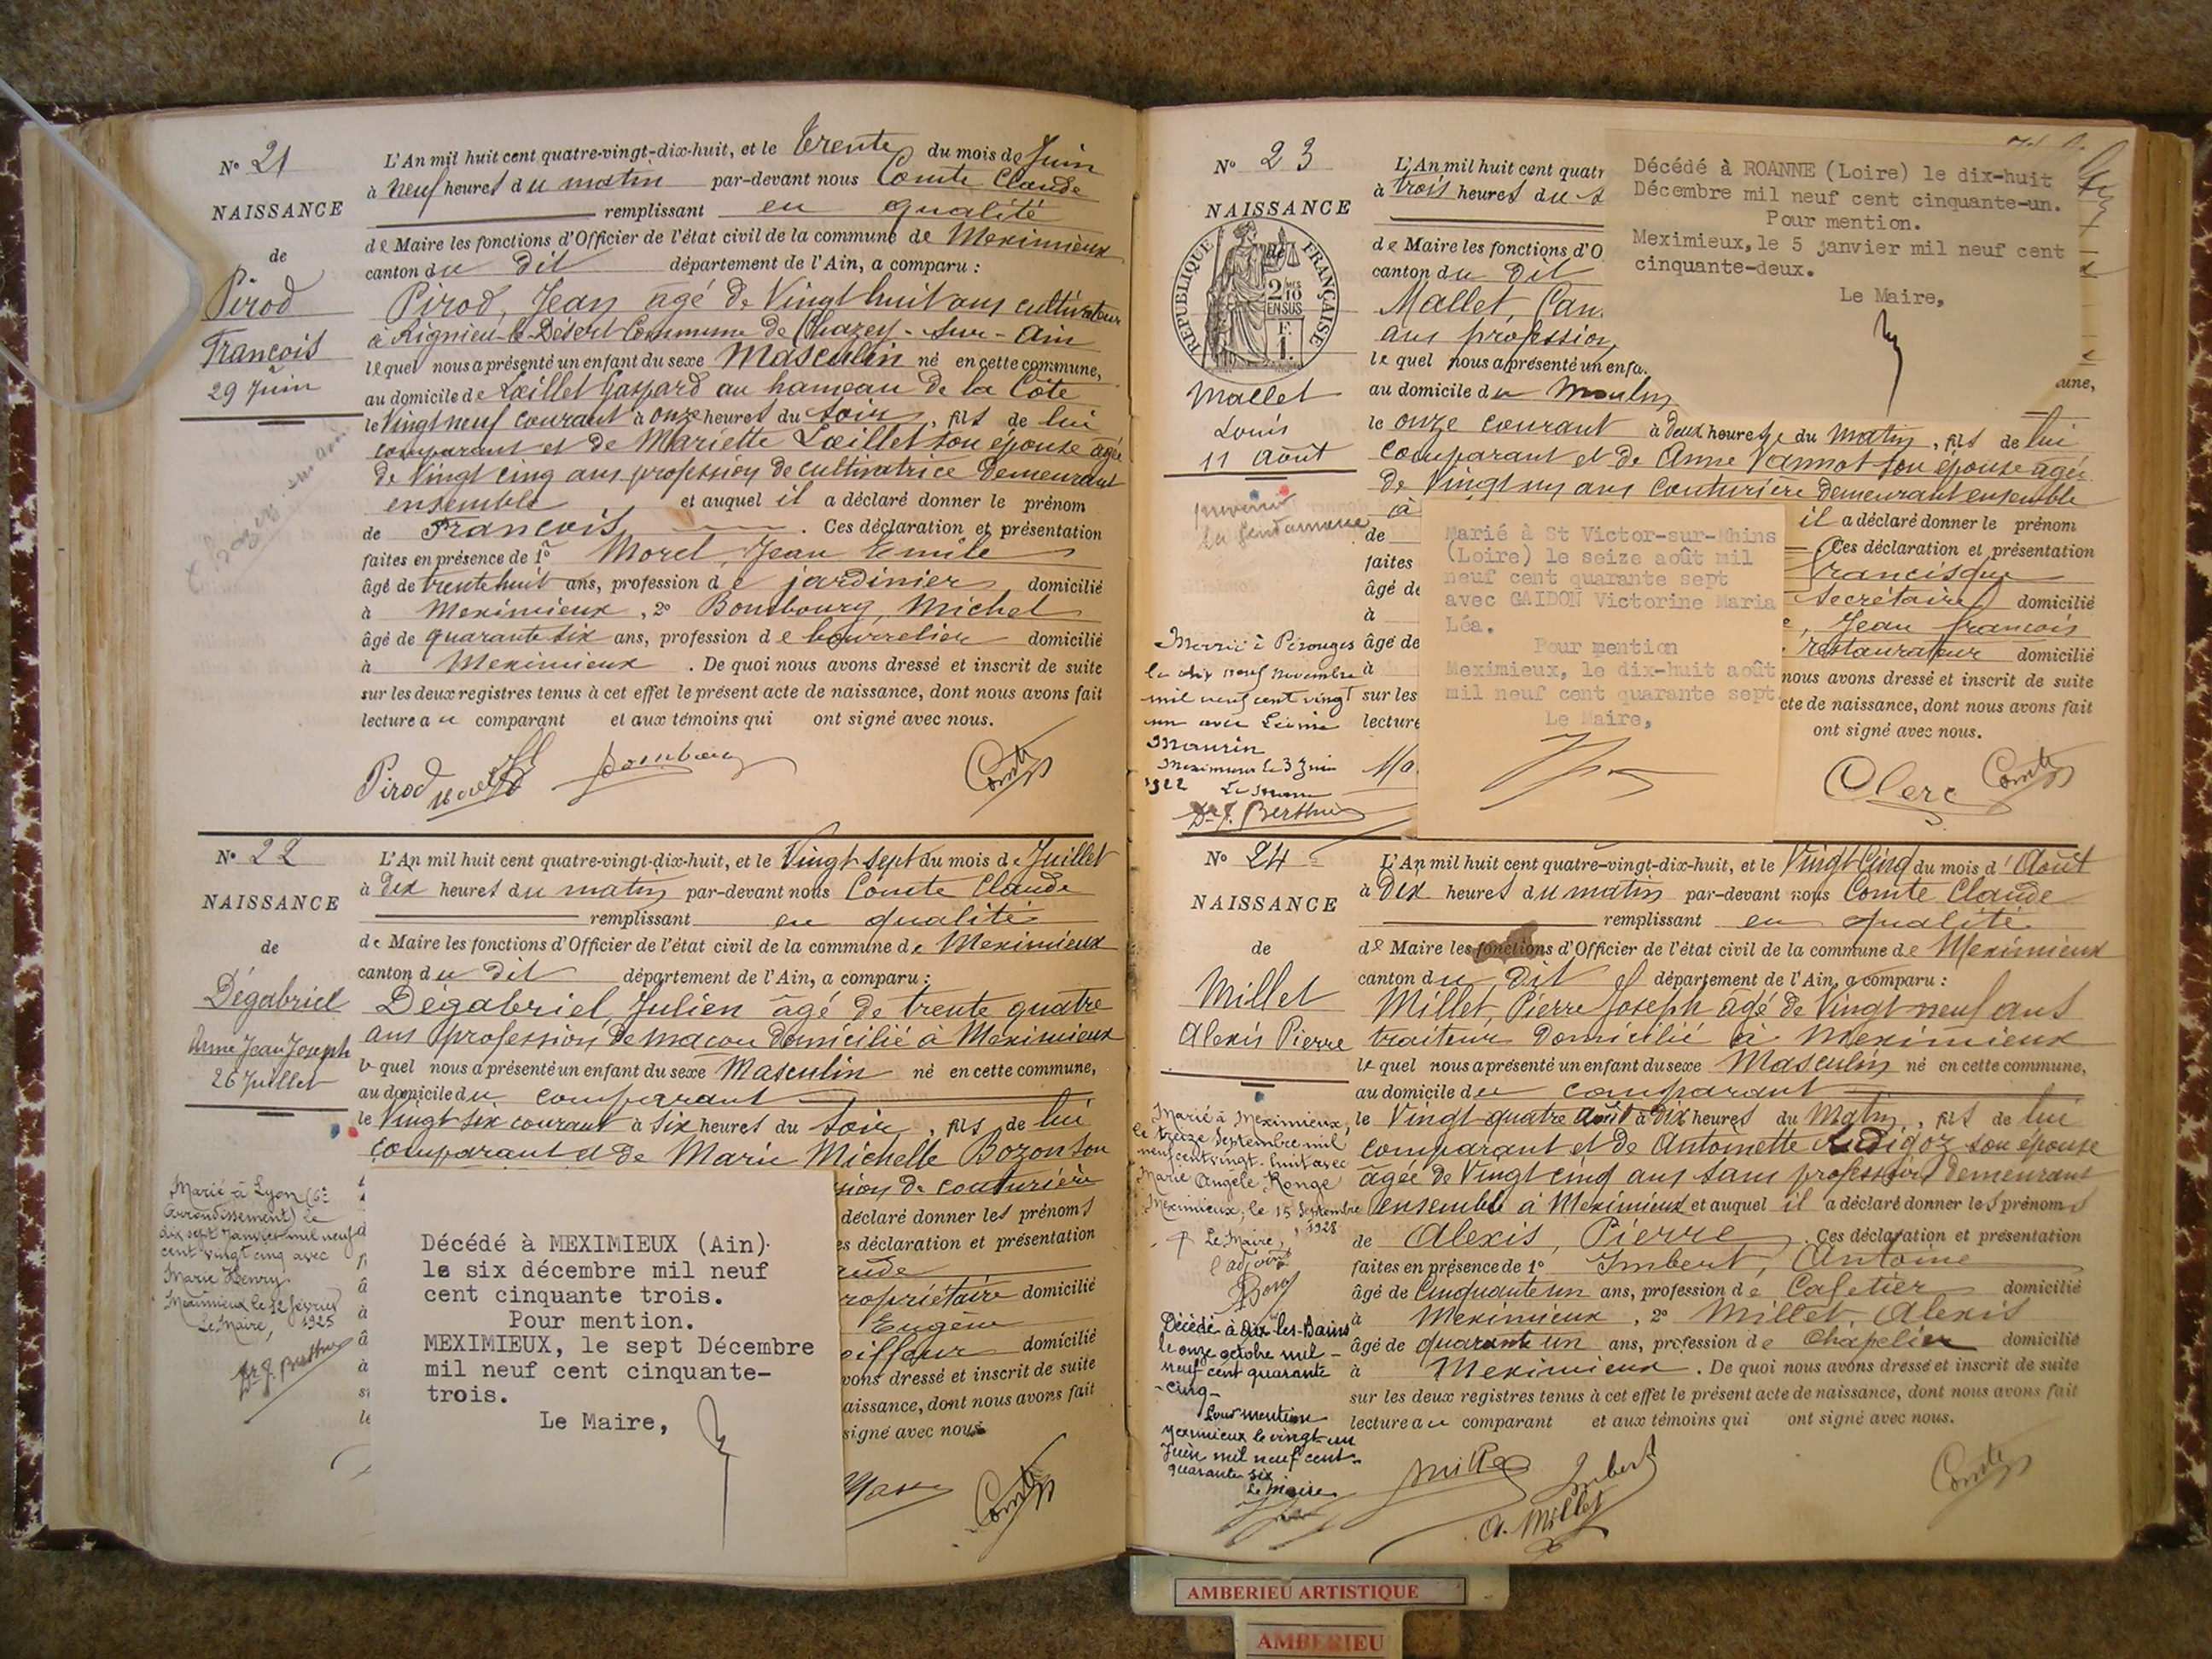 N° 21
NAISSANCE
de
Pirod
François
29 Juin
L'An mil huit cent quatre-vingt-dix-huit, et le trente du mois de Juin
à neuf heures du matin par-devant nous Comte Claude
remplissant en qualité
de Maire les fonctions d'Officier de l'état civil de la commune de Meximieux
canton du dit département de l'Ain, a comparu :
Pirod, Jean âgé de Vingt huit ans cultivateur
à Rignieu-le-Désert Commune de Chazey-sur-Ain
lequel nous a présenté un enfant du sexe Masculin né en cette commune,
au domicile de Lœillet Gaspard au hameau de la Côte
le Vingt neuf courant à onze heures du soir, fils de lui
comparant et de Mariette Lœillet son épouse âgée
de Vingt cinq ans profession de cultivatrice demeurant
ensemble et auquel il a déclaré donner le prénom
de François. Ces déclaration et présentation
faites en présence de 1° Morel, Jean Emile
âgé de trente huit ans, profession de jardinier domicilié
à Meximieux, 2° Bombourg, Michel
âgé de quarante six ans, profession de bourrelier domicilié
à Meximieux. De quoi nous avons dressé et inscrit de suite
sur les deux registres tenus à cet effet le présent acte de naissance, dont nous avons fait
lecture au comparant et aux témoins qui ont signé avec nous.
Pirod Morel Bombourg Comte
N° 22
NAISSANCE
de
Dégabriel
Anne Jean Joseph
26 Juillet
Marié à Lyon (6e
arrondissement) le
dix sept Janvier mil neuf
cent vingt cinq avec
Marie Henry
Meximieux le 12 février
Le Maire, 1925
Dr J. Berthier
L'An mil huit cent quatre-vingt-dix-huit, et le Vingt sept du mois de Juillet
à Dix heures du matin par-devant nous Comte Claude
remplissant en qualité
de Maire les fonctions d'Officier de l'état civil de la commune de Meximieux
canton du dit département de l'Ain, a comparu :
Dégabriel, Julien âgé de trente quatre
ans profession de maçon domicilié à Meximieux
lequel nous a présenté un enfant du sexe Masculin né en cette commune,
au domicile du comparant
le Vingt six courant à six heures du soir, fils de lui
comparant et de Marie Michelle Bozon son
sion de couturière
déclaré donner les prénoms
es déclaration et présentation
aude
ropriétaire domicilié
Eugène
oiffeur domicilié
vons dressé et inscrit de suite
aissance, dont nous avons fait
signé avec nous
Comte
Décédé à MEXIMIEUX (Ain)
le six décembre mil neuf
cent cinquante trois.
Pour mention.
MEXIMIEUX, le sept Décembre
mil neuf cent cinquante-
trois.
Le Maire,
N° 23
NAISSANCE
de
RÉPUBLIQUE FRANÇAISE
2/10 EN SUS
F. 1.
Mallet
Louis
11 Août
prévenir
la gendarmerie
Marié à Pérouges
le dix neuf novembre
mil neuf cent vingt
un avec Léonie
Maurin
Meximieux le 3 Juin
1922 Le Maire
Dr J. Berthier
L'An mil huit cent quatr
à trois heures du s
de Maire les fonctions d'O
canton du dit
Mallet,
ans profession
lequel nous a présenté un enfa
au domicile du Moulin
une,
le onze courant à deux heures du matin, fils de lui
comparant et de Anne Vannot son épouse âgée
de Vingt un ans couturière demeurant ensemble
à
il a déclaré donner le prénom
de
Ces déclaration et présentation
faites
Francisque
âgé de
Secrétaire domicilié
à
, Jean François
âgé de
restaurateur domicilié
à
nous avons dressé et inscrit de suite
sur les
cte de naissance, dont nous avons fait
lecture
ont signé avec nous.
Ma
Clerc Comte
Décédé à ROANNE (Loire) le dix-huit
Décembre mil neuf cent cinquante-un.
Pour mention.
Meximieux, le 5 janvier mil neuf cent
cinquante-deux.
Le Maire,
Marié à St Victor-sur-Rhins
(Loire) le seize août mil
neuf cent quarante sept
avec GAIDON Victorine Maria
Léa.
Pour mention
Meximieux, le dix-huit août
mil neuf cent quarante sept.
Le Maire,
N° 24
NAISSANCE
de
Millet
Alexis Pierre
Marié à Meximieux,
le treize Septembre mil
neuf cent vingt-huit avec
Marie Angèle Ronge
Meximieux, le 15 Septembre
1928
Le Maire,
l'adjoint
Décédé à Aix-les-Bains
le onze octobre mil
neuf cent quarante
-cinq-
Pour mention
Meximieux le vingt-un
Juin mil neuf cent
quarante six
Le Maire
L'An mil huit cent quatre-vingt-dix-huit, et le Vingt Cinq du mois d'Août
à Dix heures du matin par-devant nous Comte Claude
remplissant en qualité
de Maire les fonctions d'Officier de l'état civil de la commune de Meximieux
canton du dit département de l'Ain, a comparu :
Millet, Pierre Joseph âgé de Vingt neuf ans
traiteur domicilié à Meximieux
lequel nous a présenté un enfant du sexe Masculin né en cette commune,
au domicile du comparant
le Vingt-quatre Août à Dix heures du Matin, fils de lui
comparant et de Antoinette son épouse
âgée de Vingt cinq ans sans profession demeurant
ensemble à Meximieux et auquel il a déclaré donner les prénoms
de Alexis, Pierre. Ces déclaration et présentation
faites en présence de 1° Imbert, Antoine
âgé de Cinquante un ans, profession de Cafetier domicilié
à Meximieux, 2° Millet, Alexis
âgé de quarante un ans, profession de Chapelier domicilié
à Meximieux. De quoi nous avons dressé et inscrit de suite
sur les deux registres tenus à cet effet le présent acte de naissance, dont nous avons fait
lecture au comparant et aux témoins qui ont signé avec nous.
Millet Imbert Comte
A. Millet
AMBERIEU ARTISTIQUE
AMBERIEU